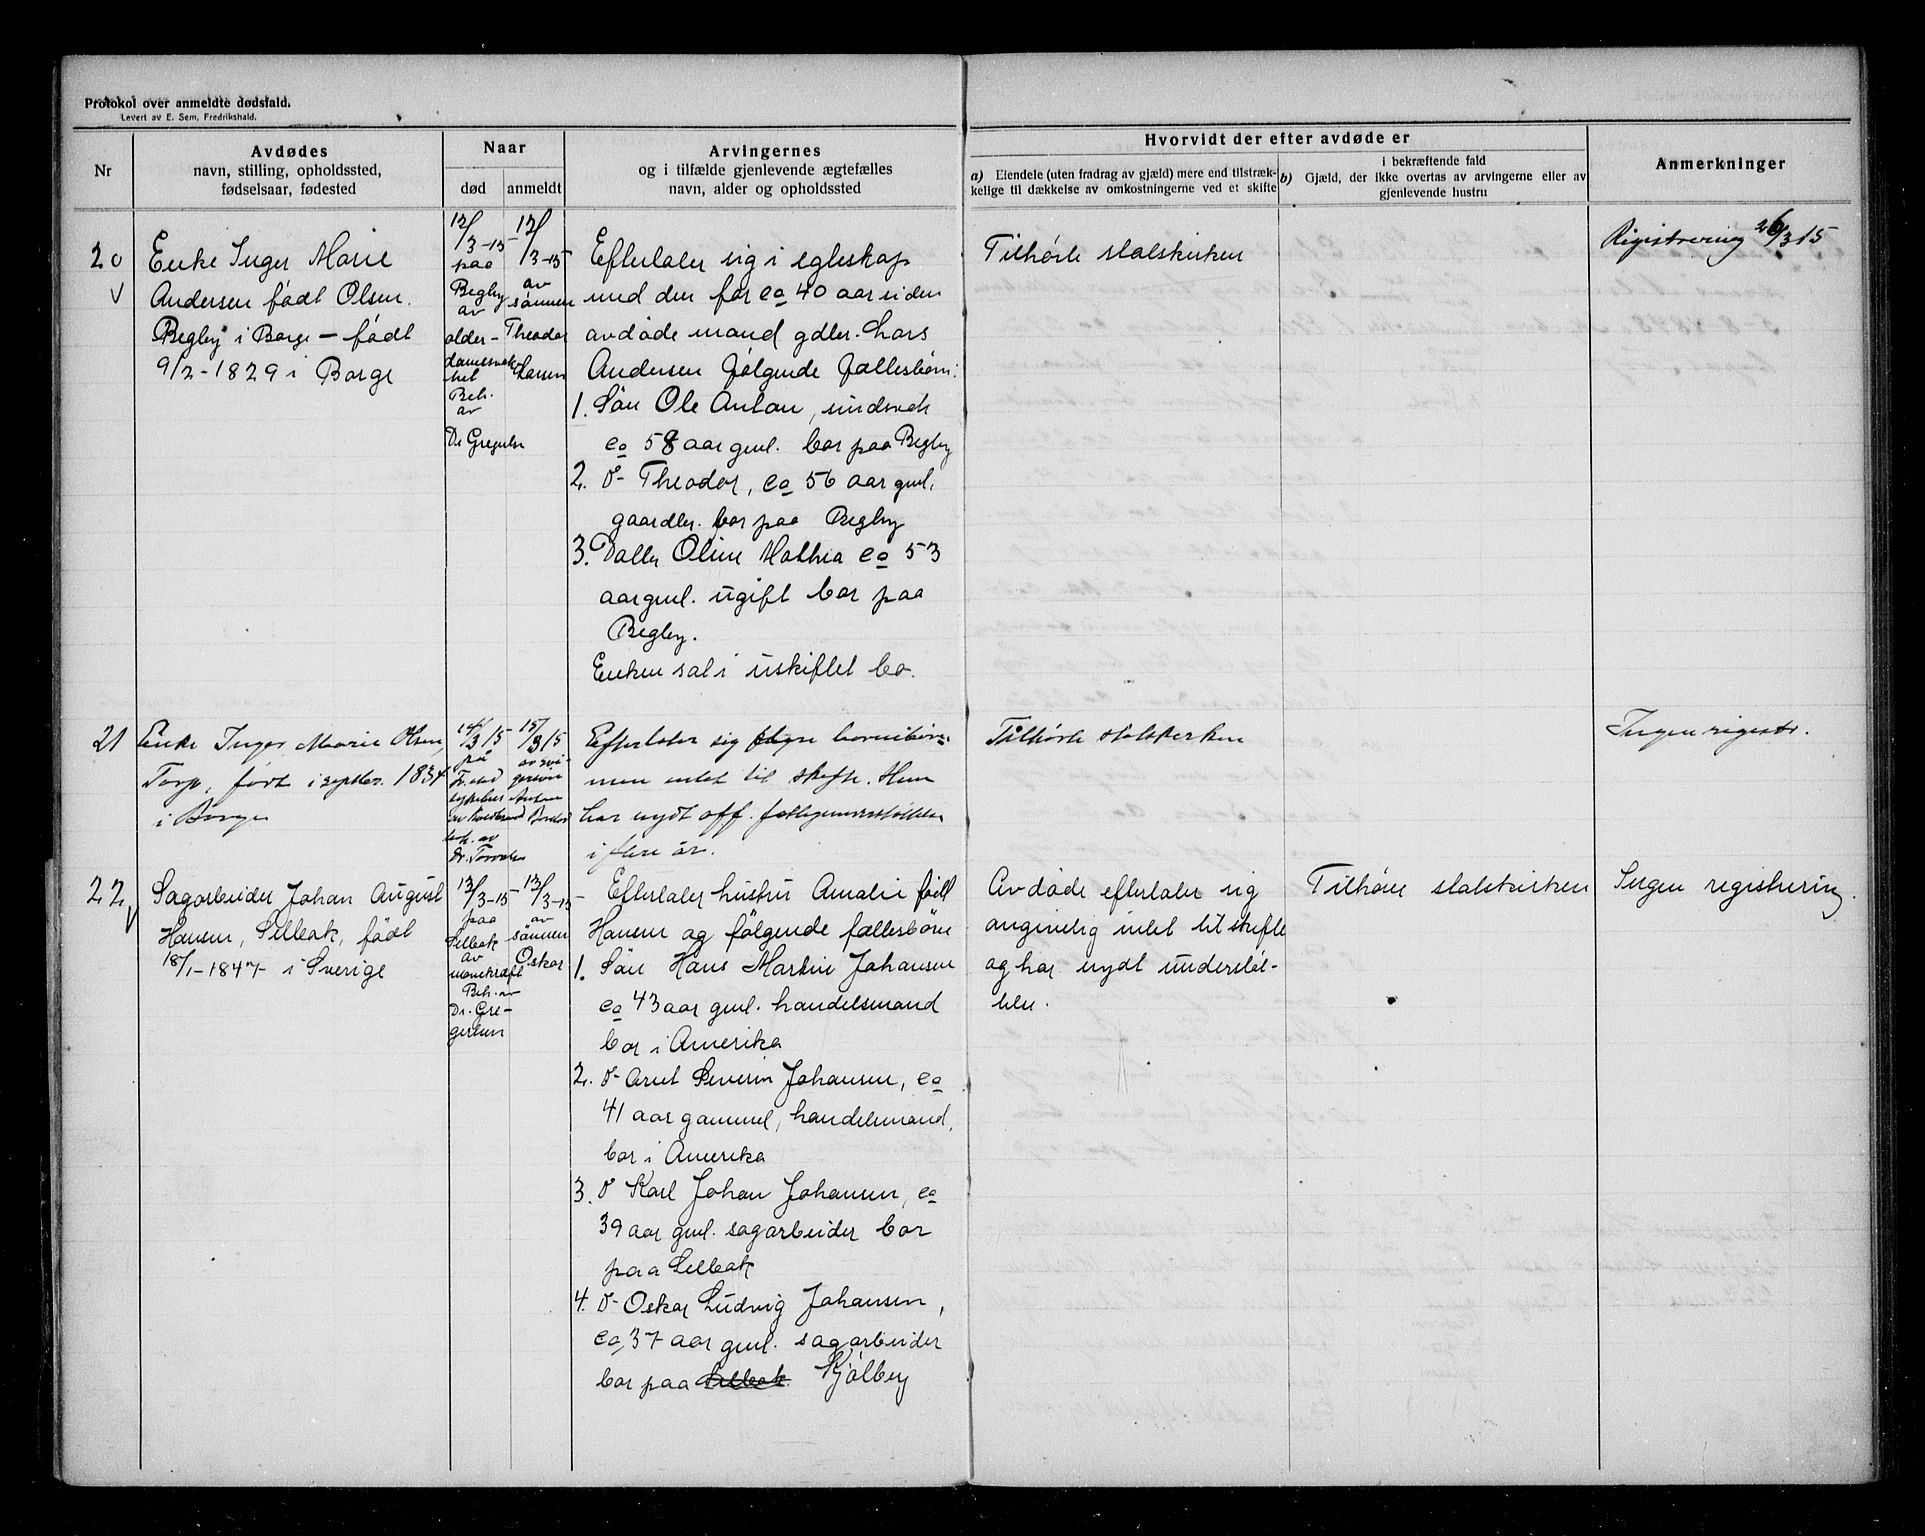 Protokol over anmeldte dødsfald.
Levert av E. Sem, Fredrikshald.
Nr
Avdødes
navn, stilling, opholdssted,
fødselsaar, fødested
Naar
død
anmeldt
Arvingernes
og i tilfælde gjenlevende ægtefælles
navn, alder og opholdssted
Hvorvidt der efter avdøde er
a) Eiendele (uten fradrag av gjæld) mere end tilstræk-
kelige til dækkelse av omkostningerne ved et skifte
i bekræftende fald
b) Gjæld, der ikke overtas av arvingerne eller av
gjenlevende hustru
Anmerkninger
20
Enke Inger Marie
Andersen født Olsen.
Begby i Borge – født
9/2-1829 i Borge
12/3-15
paa
Begby
av
alder-
domssvak
het
Beh.
av
Dr Gregersen
12/3-15
av
sønnen
Theodor
Larsen
Efterlater sig i egteskap
med den for ca 40 aar siden
avdøde mand gdbr. Lars
Andersen følgende fællesbørn:
1. Søn Ole Anton, sindsvak
ca 58 aar gml. bor paa Begby
2. d- Theodor, ca 56 aar gml.
gaardbr. bor paa Begby
3. Datter Oline Mathea ca 53
aar gml. ugift bor paa
Begby.
Enken sat i uskiftet bo.
Tilhørte statskirken
Registrering 26/3 15
21
Enke Inger Marie Olsen,
Torp, født i septbr. 1834
i Borge
14/3 15
på
Fr.stad
sykehus
av Koldbrand
beh. av
Dr.
15/3 15
av svi-
gersøn
Anton
Efterlater sig barnebørn
men intet til skifte. Hun
har nydt off. fattigunderstøttelse
i flere år.
Tilhørte statskirken
Ingen registr.
22
Sagarbeider Johan August
Hansen, Selbak, født
18/1-1847 i Sverige
13/3-15
paa
Selbak
av
manekræft
Beh. av
Dr. Gre-
gersen
13/3-15
av
sønnen
Oskar
Efterlater hustru Amalie født
Hansen og følgende fællesbørn
1. Søn Hans Martin Johansen
ca 43 aar gml. handelsmand
bor i Amerika
2. d- Arnt Severin Johansen, ca
41 aar gammel, handelsmand,
bor i Amerika
3. d Karl Johan Johansen, ca
39 aar gml. sagarbeider bor
paa Selbak
4. d- Oskar Ludvig Johansen,
ca 37 aar gml. sagarbeider
bor paa Selbak. Kjølberg
Avdøde efterlater sig
angivelig intet til skifte
og har nydt understøt-
telse.
Tilhørte statskirken
Ingen registrering.